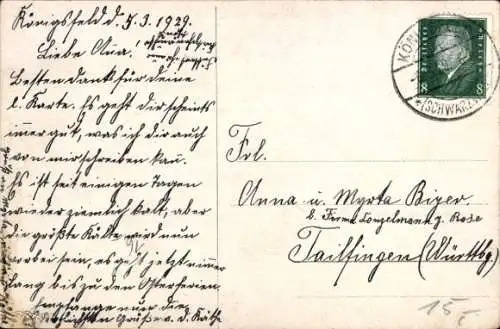 Königsfeld d. 7.3.1929.
Liebe Ana!
Besten Dank für deine
l. Karte. Es geht dir scheints
immer gut, was ich dir auch
von mir schreiben kan.
Es ist seit einigen Tagen
wieder ziemlich kalt, aber
die größte Kälte wird nun
vorbei sein, es geht jetzt nimmer
lang bis zu den Osterferien
Empfange nur die
herzlichsten Grüße v. d. Käthe
Frl.
Anna u. Myrta Bizer
b. Firma Conzelmann z. Rose
Tailfingen (Württbg.)
DEUTSCHES REICH
8 8
KÖNI
(SCHWARZW
15.-